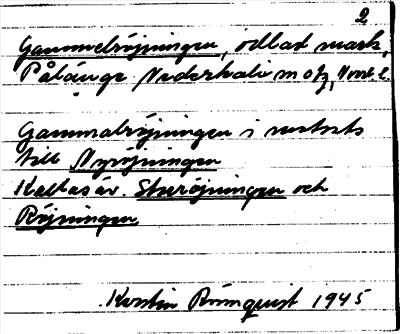 2
Gammelröjningen, odlad mark,
Pålänge Nederkalix
Gammalröjningen i motsats
till Nyröjningen
Kallas äv. Storröjningen och
Röjningen
Kerstin Rönnquist 1945